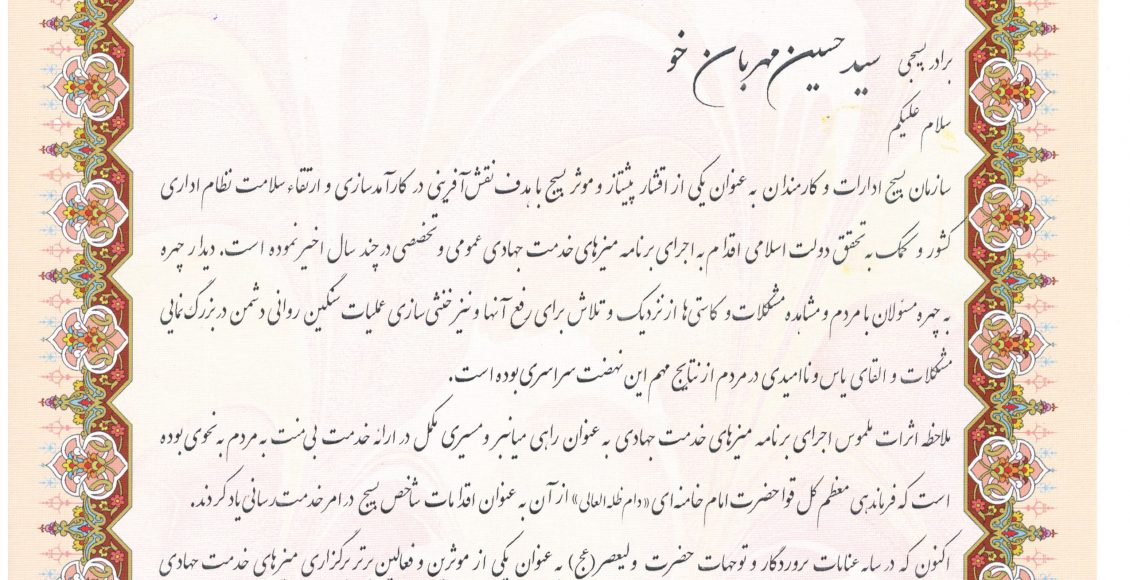 برادر بسیجی سید حسین مهربان خو
سلام علیکم
سازمان بسیج ادارات و کارمندان به عنوان یکی از اقشار پیشتاز و موثر بسیج با هدف نقش آفرینی در کارآمدسازی و ارتقاء سلامت نظام اداری
کشور و کمک به تحقق دولت اسلامی اقدام به اجرای برنامه میزهای خدمت جهادی عمومی و تخصصی در چند سال اخیر نموده است. دیدار چهره
به چهره مسئولان با مردم و مشاهده مشکلات و کاستی‌ها از نزدیک و تلاش برای رفع آنها و نیز خنثی سازی عملیات سنگین روانی دشمن در بزرگ نمایی
مشکلات و القای یاس و ناامیدی در مردم از نتایج مهم این نهضت سراسری بوده است.
ملاحظه اثرات ملموس اجرای برنامه میزهای خدمت جهادی به عنوان راهی میانبر و مسیری مکمل در ارائه خدمت بی‌منت به مردم به نحوی بوده
است که فرماندهی معظم کل قوا حضرت امام خامنه ای «دام ظله العالی» از آن به عنوان اقدامات شاخص بسیج در امر خدمت رسانی یاد کردند.
اکنون که در سایه عنایات پروردگار و توجهات حضرت ولیعصر(عج) به عنوان یکی از موثرین و فعالین برتر برگزاری میزهای خدمت جهادی